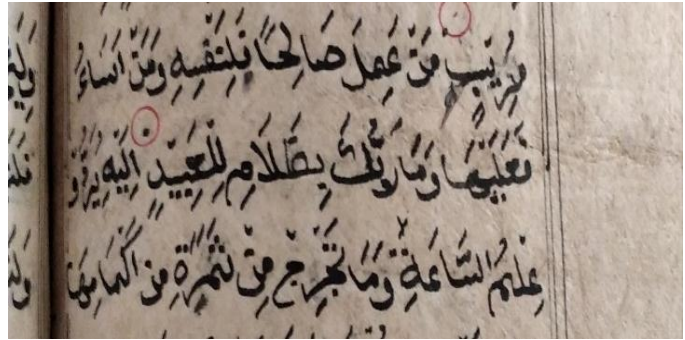 مُرِيبٍ مَنْ عَمِلَ صَالِحًا فَلِنَفْسِهِ وَمَنْ أَسَاءَ
فَعَلَيْهَا وَمَا رَبُّكَ بِظَلَّامٍ لِلْعَبِيدِ إِلَيْهِ يُرَدُّ
عِلْمُ السَّاعَةِ وَمَا تَخْرُجُ مِنْ ثَمَرَةٍ مِنْ أَكْمَامِهَا